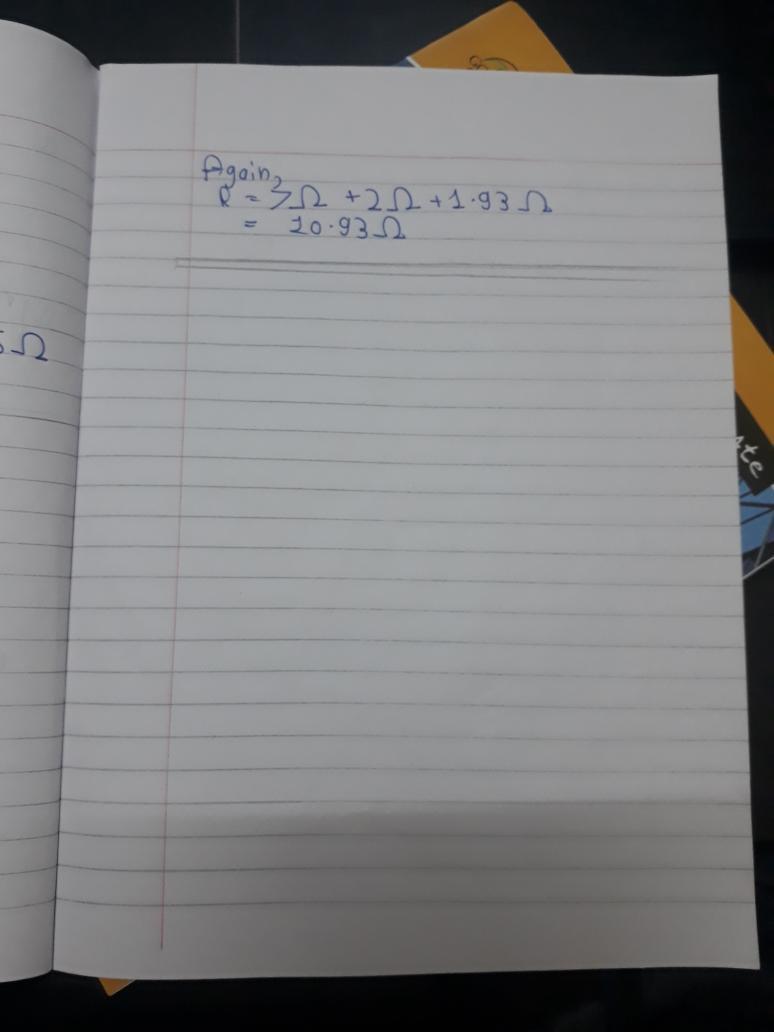 Again,
R = 7Ω + 2Ω + 1.93Ω
= 10.93Ω
5Ω
te